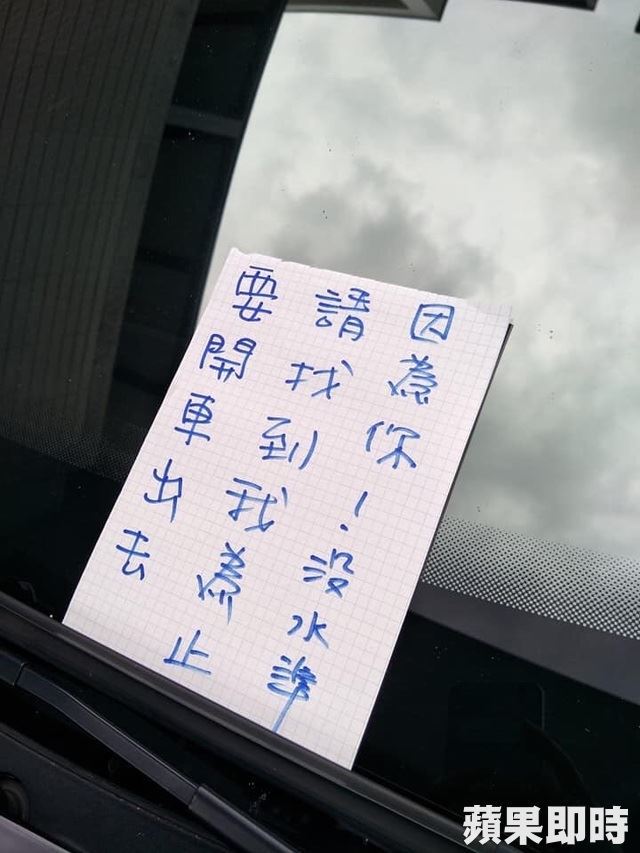 因為你！沒水準
請找到我為止
要開車出去
蘋果即時